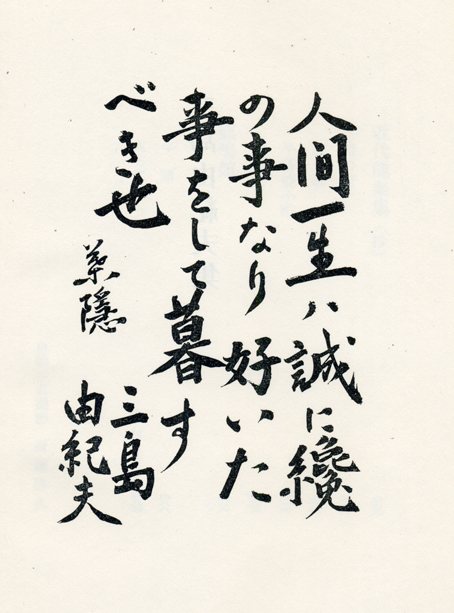 人間一生ハ誠に纔
の事なり好いた
事をして暮す
べき也
葉隠
三島
由紀夫